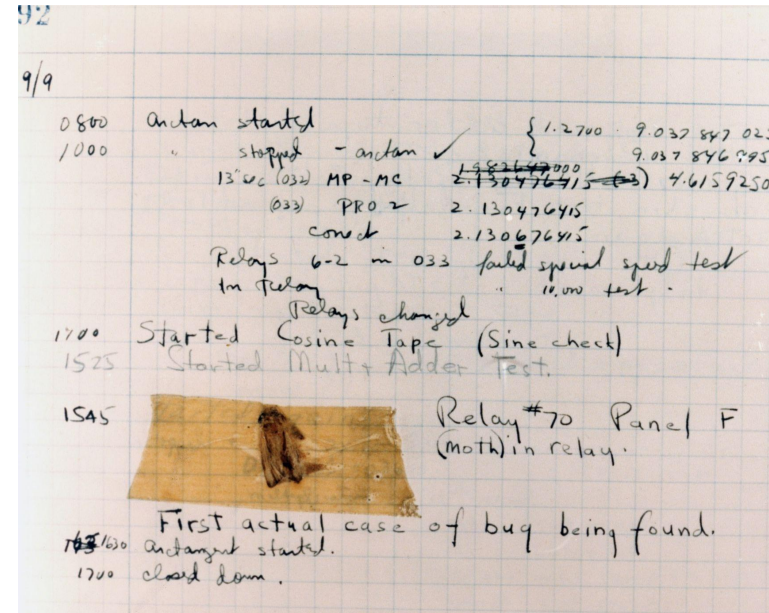 92
9/9
0800 arctan started { 1.2700 9.037 847 025
1000 " stopped - arctan ✓ 9.037 846 995
13" sec (032) MP - MC 2.130476415 (-3) 4.6159250
(033) PRO 2 2.130476415
conect 2.130676415
Relays 6-2 in 033 failed special speed test
In Relay " 10,000 test .
Relays changed
1700 Started Cosine Tape (Sine check)
1525 Started Mult + Adder Test.
1545 Relay #70 Panel F
(moth) in relay.
First actual case of bug being found.
1630 arctangent started.
1700 closed down.